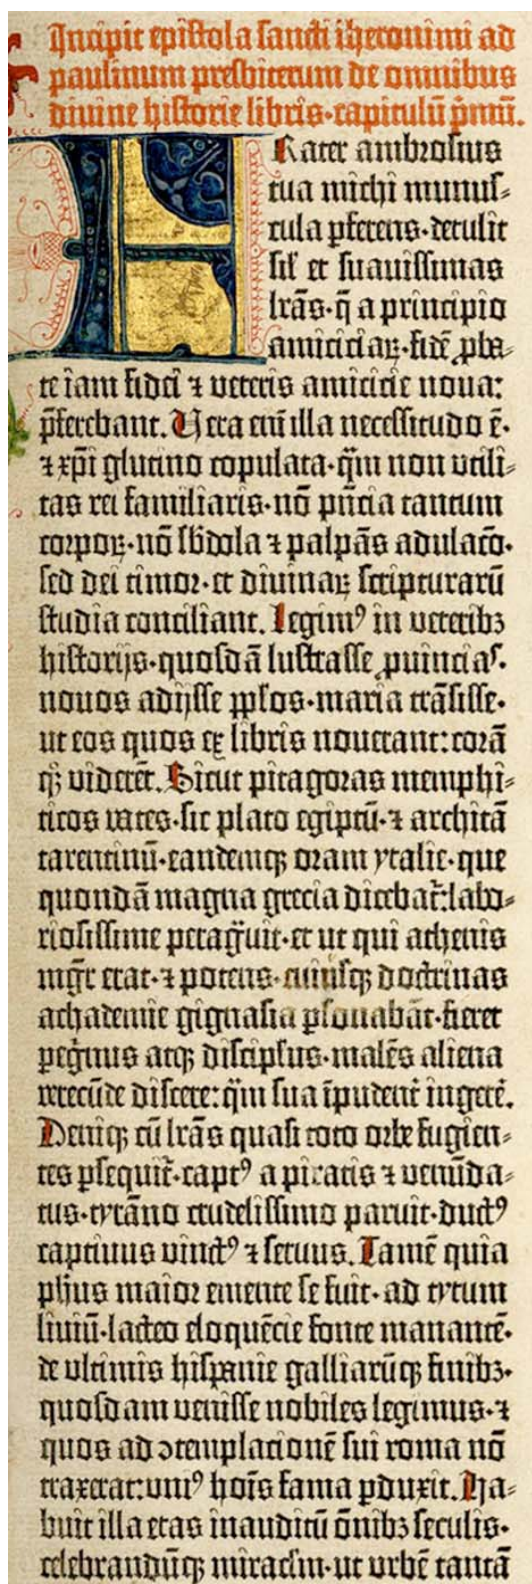 Incipit epistola sancti iheronimi ad
paulinum presbiterum de omnibus
divine historie libris·capitulū p̄mū.
Frater ambrosius
tua michi munus-
cula ꝑferens·detulit
sil̄ et suavissimas
lr̄as·q̄ a principio
amiciciaꝝ·fidē ꝓba-
te iam fidei ⁊ veteris amicicie nova:
p̄ferebant. Vera eni̅ illa necessitudo ē·
⁊ xp̄i glutino copulata·qm̄ non utili-
tas rei familiaris·nō pn̄cia tantum
corpoꝝ·nō sb̄dola ⁊ palpās adulacō·
sed dei timor·et divinaꝝ scripturarū
studia conciliant. Legimꝰ in veteribꝫ
historijs·quosdā lustrasse ꝓuincias·
novos adijsse ppl̄os·maria trāsisse·
ut eos quos ex libris noverant: corā
qꝫ viderēt. Sicut pitagoras memphi-
ticos vates·sic plato egiptū·⁊ architā
tarentinū·eandemqꝫ oram ytalie·que
quondā magna grecia dicebat̄: labo-
riosissime peragravit·et ut qui athenis
mgr̄ erat·⁊ potens·cuiusqꝫ doctrinas
achademie gignasia ꝑsonabāt·fieret
peg̍nus atqꝫ discipl̄us·malēs aliena
verecūde discere: qm̄ sua īpudent̄ ingerē.
Deniqꝫ cū lr̄as quasi toto orbe fugien-
tes ꝑsequit̄·captꝰ a piratis ⁊ venūda-
tus·tyrāno crudelissimo paruit·ductꝰ
captivus vinctꝰ ⁊ servus. Tamē quia
ph̄us maior emente se fuit·ad tytum
livium̄·lacteo eloquēcie fonte manantē·
de ultimis hispanie galliarūqꝫ finibꝫ·
quosdam venisse nobiles legimus·⁊
quos ad ꝯtemplacionē sui roma nō
traxerat: uniꝰ hoīs fama ꝑduxit. Ha-
buit illa etas inauditū ōnibꝫ seculis·
celebrandūqꝫ miracl̄m·ut urbē tantā